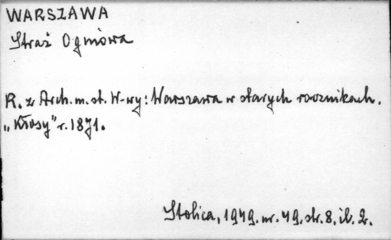 WARSZAWA
Straż Ogniowa
R. z Arch. m. st. W-wy: Warszawa w starych rocznikach.
„Kłosy" r. 1871.
Stolica, 1949. nr. 49. str. 8. il. 2.